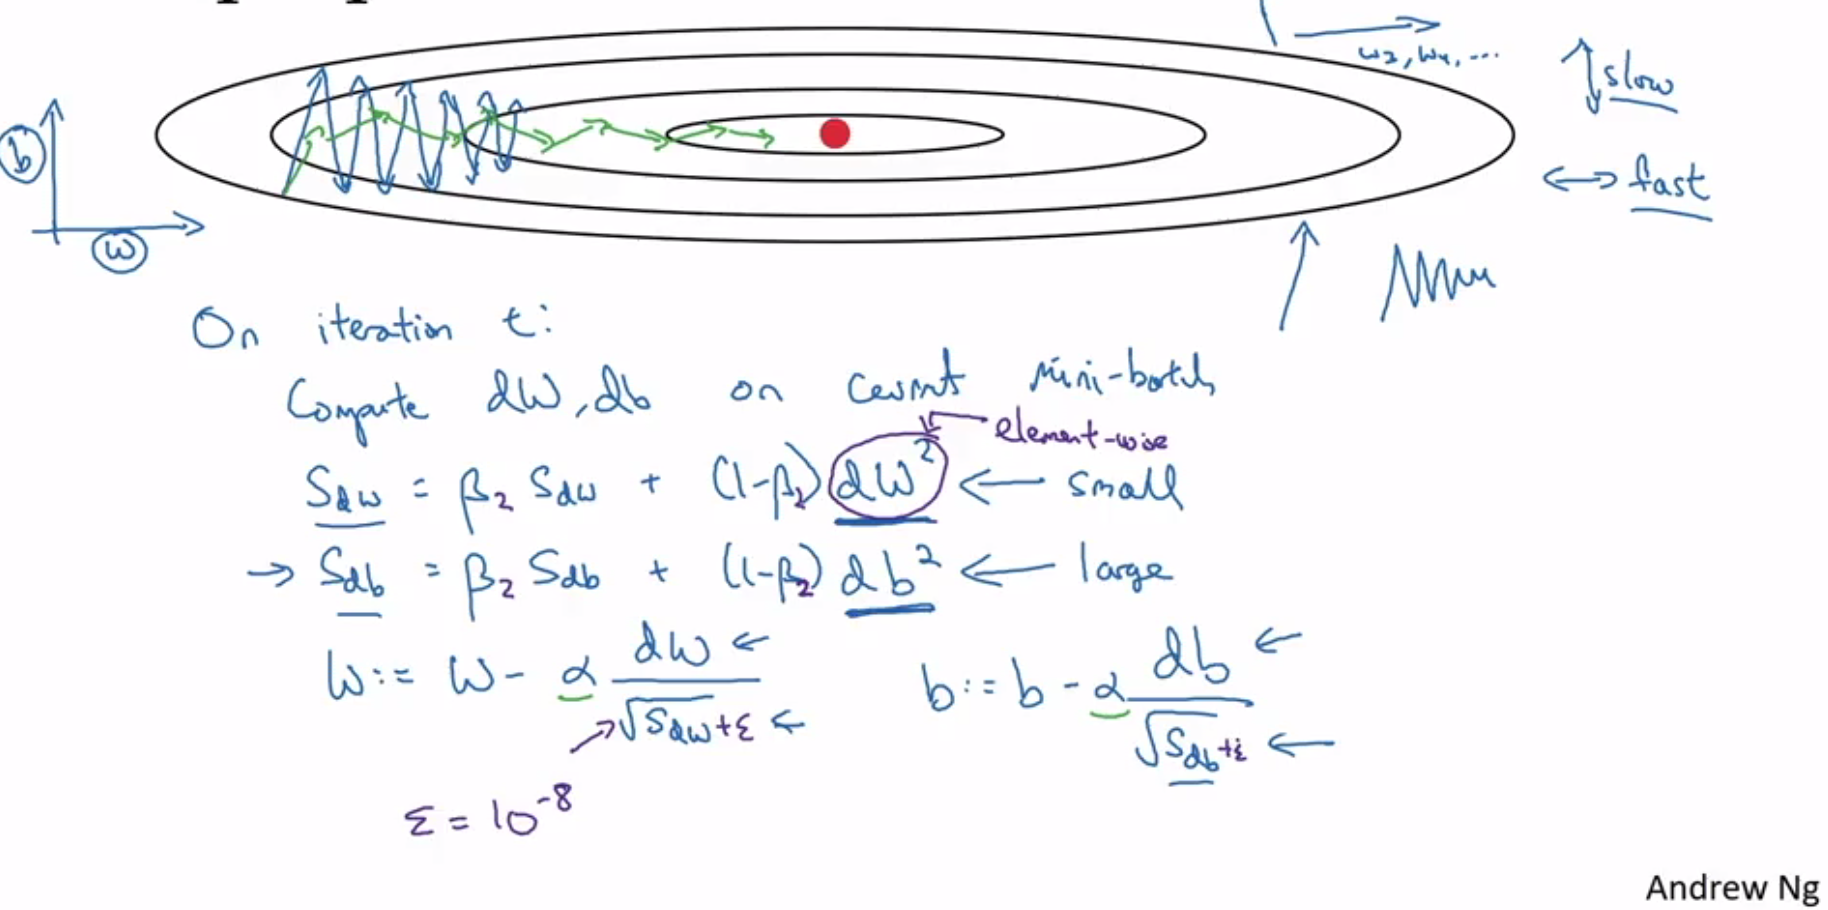 w₃, w₄, ...
slow
b
fast
w
On iteration t:
Compute dW, db on current mini-batch
element-wise
S_dw = β₂ S_dw + (1-β₂) dW² ← small
→ S_db = β₂ S_db + (1-β₂) db² ← large
W := W - α dW / √S_dW + ε ← b := b - α db / √S_db + ε ←
ε = 10⁻⁸
Andrew Ng